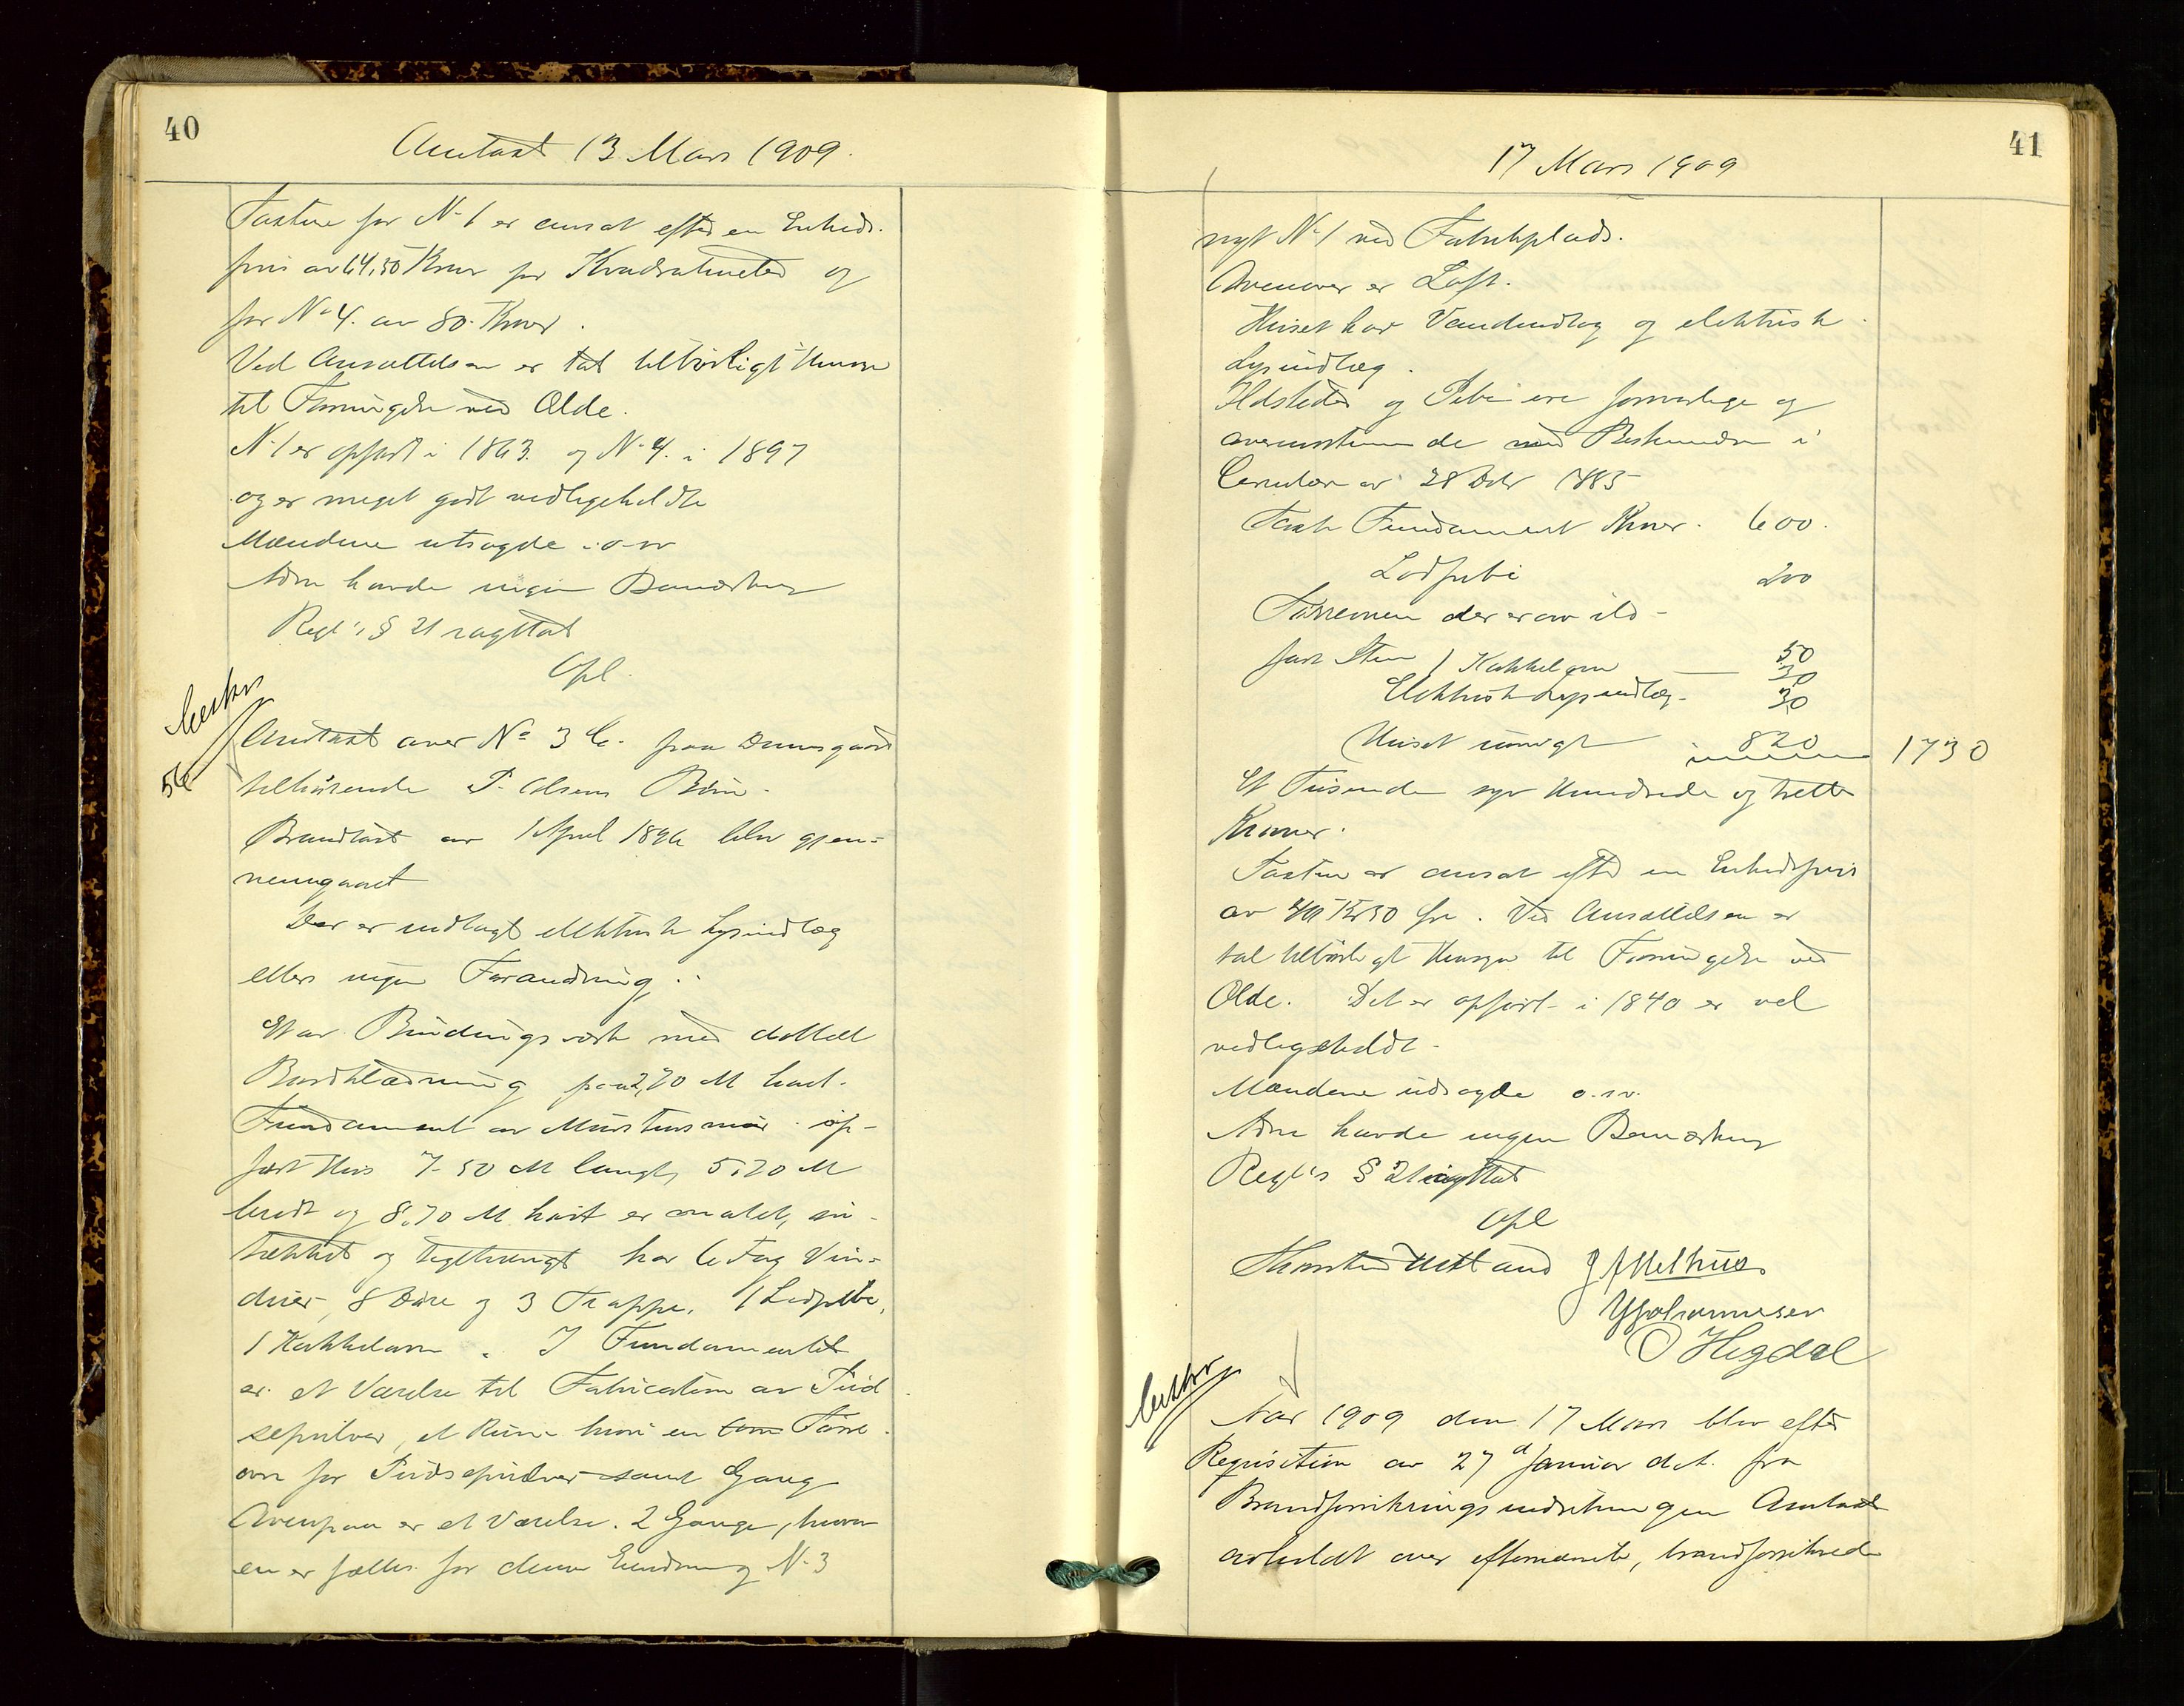 40
Omtaxt 13 Mars 1909.
Taxten for N- 1 er ansat efter en Enheds-
pris av 64,50 Kroner pr Kvadratmeter og
for N- 4. av 80. Kroner.
Ved Ansættelsen er tat tilbørligt Hensyn
til Forringelse ved Ælde.
N- 1 er opført i 1863. og N- 4. i 1897
og er meget godt vedligeholdte
Mændene utsagde o-sv
Adm havde ingen Bemærkning
Regl's § 21 iagttat
Opl.
56
Omtaxt over No 3 b. paa
tilhørende P. Olsens Børn.
Brandtaxt av 1 April 1896 blev gjen=
nemgaaet
Der er indlagt elektrisk Lysindlæg
ellers ingen Forandring.
Et av Bindingsværk med dobbelt
Bordklædning paa 2,70 M høit
Fundament av Murstensmur op-
ført Hus 7-50 M langt, 5,70 M
bredt og 8,70 M høit er malet,
tækket og teglhængt har 6 Fag Vin=
duer, 8 Døre og 3 Trapper, 1 Lodpibe,
1 Kakkelovn. I Fundamentet
er et Værelse til Fabrication av Pud
sepulver, et Rum hvori en Tørre
ovn for Pudsepulver samt Gang
Ovenpaa er et Værelse. 2 Gange, hvorav
en er fælles for denne Eiendom og N- 3
41
17 Mars 1909
nyt N- 1 ved Fabrikplads.
Ovenover er Loft.
Huset har Vandindlæg og elektrisk
Lysindlæg.
Ildsteder og Piber ere forsvarlige og
overensstemmende med Bestemmelsen i
Cirkulær av 28 Debr 1885
Taxt Fundament Kroner. 600.
Lodpibe 200
Tørreovnen der er av ild-
fast Sten 50
1 Kakkelovn 30
Elektrisk Lysindlæg 30
Huset iøvrigt 820 1730
Et Tusinde syv Hundrede og tretti
Kroner.
Taxten er ansat efter en Enhedspris
av 40 Kr 50 Øre. Ved Ansættelsen er
tat tilbørligt Hensyn til Forringelse ved
Ælde. Det er opført i 1840 er vel
vedligeholdt.
Mændene udsagde o.s.v.
Adm havde ingen Bemærkning
Regl's § 21 iagttat
Opl
J A Melhus
Y Johannesen
O Hegdal
Aar 1909 den 17 Mars blev efter
Requisition av 27d Januar d.A. fra
Brandforsikringsindretningen Omtaxt
avholdt over efternævnte, brandforsikrede